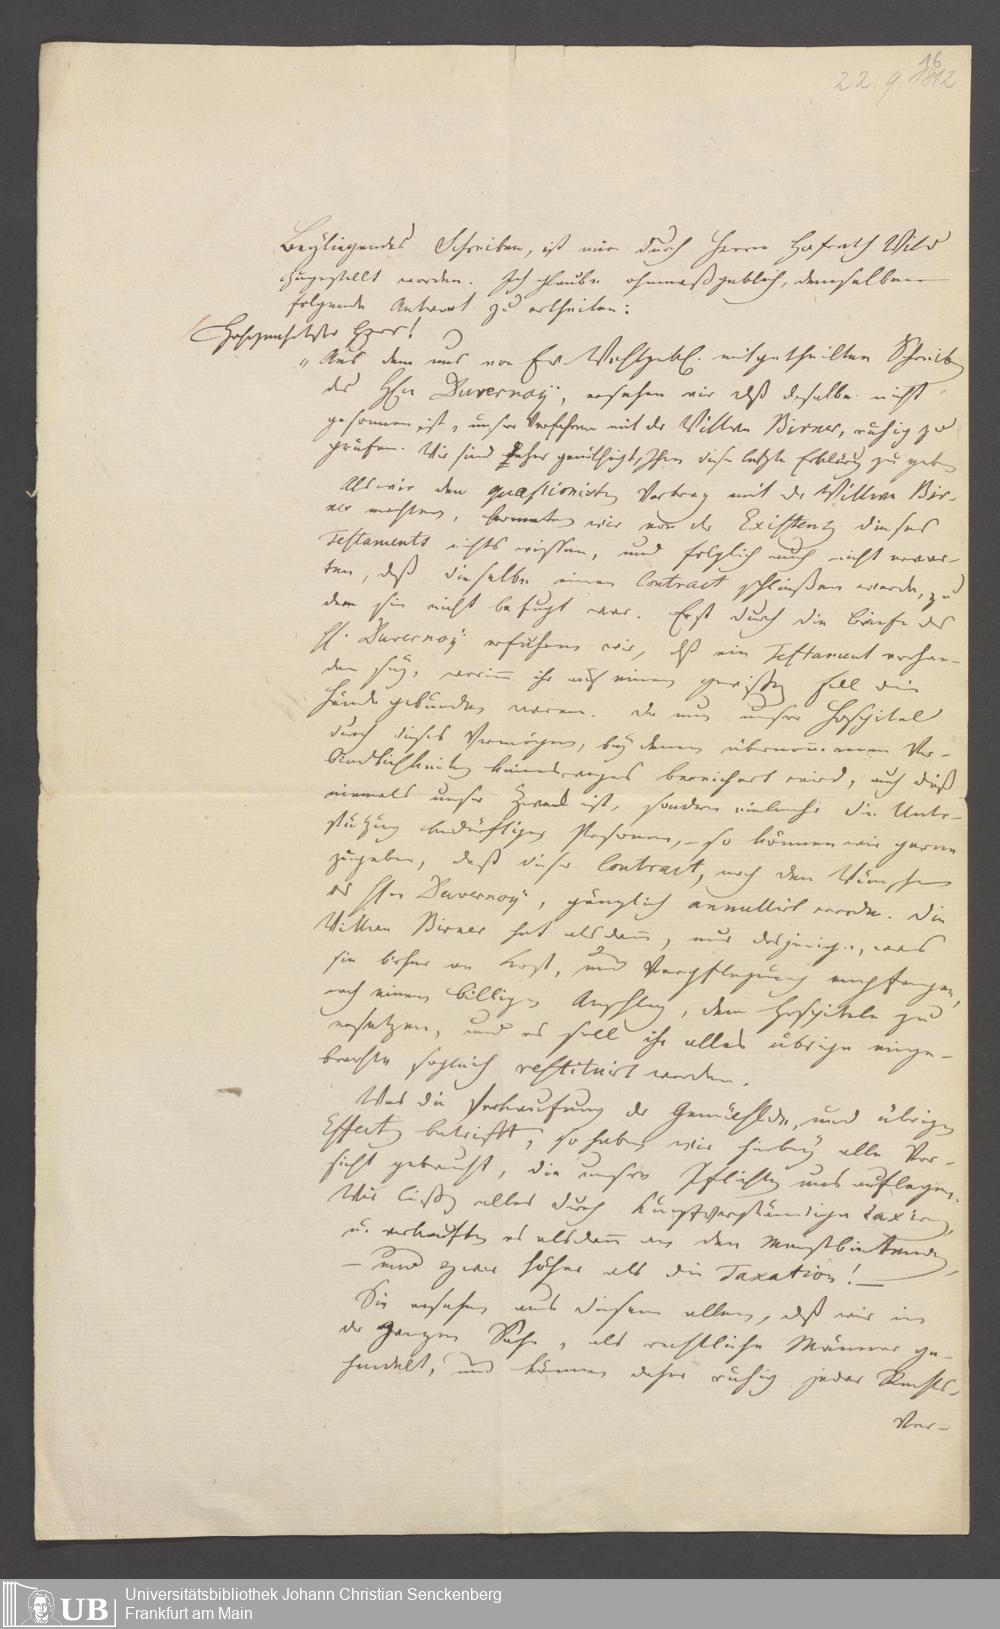 16
22. 9. 1812.
Beyliegendes Schreiben, ist mir durch Herrn Hofrath Wild
zugestellt worden. Ich glaube ohnmaßgeblich, demselben
folgende Antwort zu ertheilen:
Hochgeehrtester Herr!
"Aus dem uns von Ew. Wohlgeb. mitgetheilten Schreiben
des Hrn Duvernoÿ, ersehen wir daß derselbe nicht
gesonnen ist, unser Verfahren mit der Wittwe Birner, ruhig zu
prüfen. Wir sind daher genöthigt, Ihnen diese letzte Erklärung zu geben
Als wir den quaestionirten Vertrag mit der Wittwe Bir-
ner machten, konnten wir von der Existenz dieses
Testaments nichts wissen, und folglich auch nicht erwar-
ten, daß dieselbe einen Contract schließen werde, zu
dem sie nicht befugt war. Erst durch die Briefe des
H. Duvernoÿ erfuhren wir, daß ein Testament vorhan-
den seÿ, worinn ihr auf einen gewissen Fall die
Hände gebunden waren. Da nun unser Hospital
durch dieses Vermögen, beÿ denen übernommenen Ver-
bindlichkeiten keineswegs bereichert wird, auch dieß
niemals unser Zweck ist, sondern vielmehr die Unter-
stützung bedürftiger Personen, – so können wir gerne
zugeben, daß dieser Contract, nach den Wünschen
des Hrn Duvernoÿ, gänzlich annullirt werde. Die
Wittwe Birner hat alsdann, nur dasjenige, was
sie bisher an Kost, und Verpflegung empfangen,
nach einem billigen Anschlag, dem Hospitale zu
ersetzen, und es soll ihr alles übrige einge-
brachte sogleich restituirt werden.
Was die Verkaufung der Gemählde, und übrigen
Effecten betrifft, so haben wir hierbeÿ alle Vor-
sicht gebraucht, die unsere Pflichten uns auflegen.
Wir ließen alles durch Kunstverständige taxiren,
u. verkauften es alsdann an den Meistbietenden,
– und zwar höher als die Taxation! –
Sie ersehen aus diesem allem, daß wir in
der ganzen Sache, als rechtliche Männer ge-
handelt, und können daher ruhig jeder Rechts-
Ver-
Universitätsbibliothek Johann Christian Senckenberg
Frankfurt am Main
UB